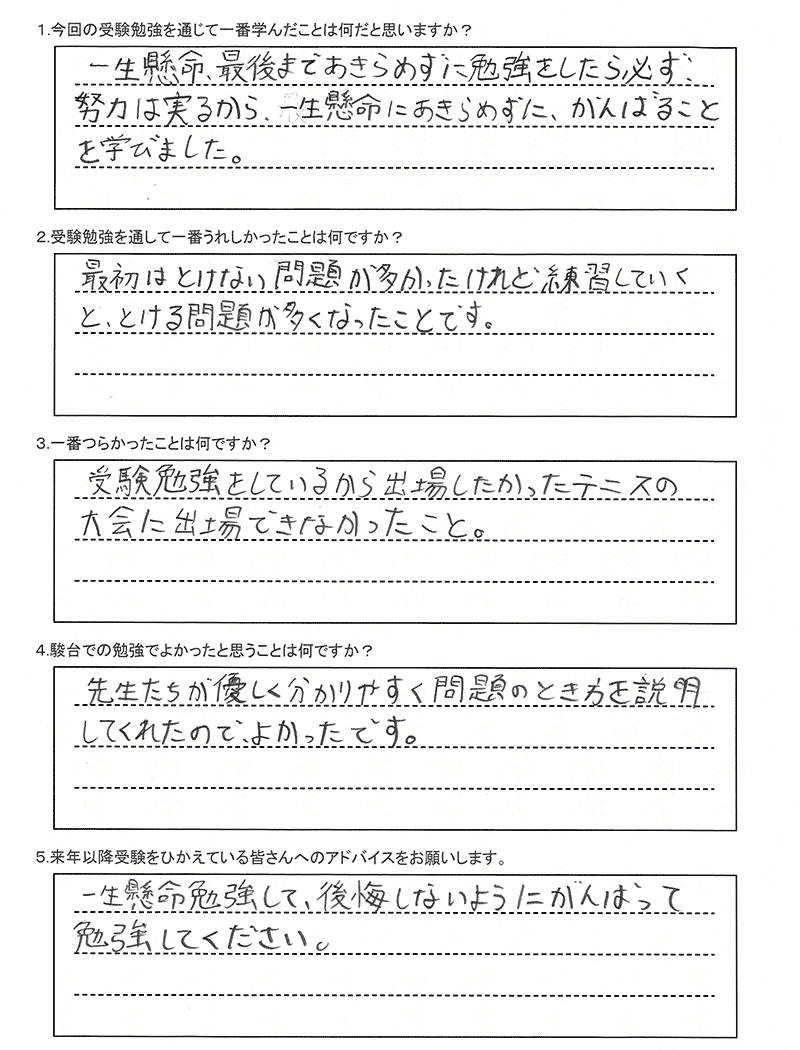 1.今回の受験勉強を通じて一番学んだことは何だと思いますか？
一生懸命、最後まであきらめずに勉強をしたら必ず、
努力は実るから、一生懸命にあきらめずに、がんばること
を学びました。
2.受験勉強を通して一番うれしかったことは何ですか？
最初はとけない問題が多かったけれど練習していく
と、とける問題が多くなったことです。
3.一番つらかったことは何ですか？
受験勉強をしているから出場したかったテニスの
大会に出場できなかったこと。
4.駿台での勉強でよかったと思うことは何ですか？
先生たちが優しく分かりやすく問題のとき方を説明
してくれたので、よかったです。
5.来年以降受験をひかえている皆さんへのアドバイスをお願いします。
一生懸命勉強して、後悔しないようにがんばって
勉強してください。